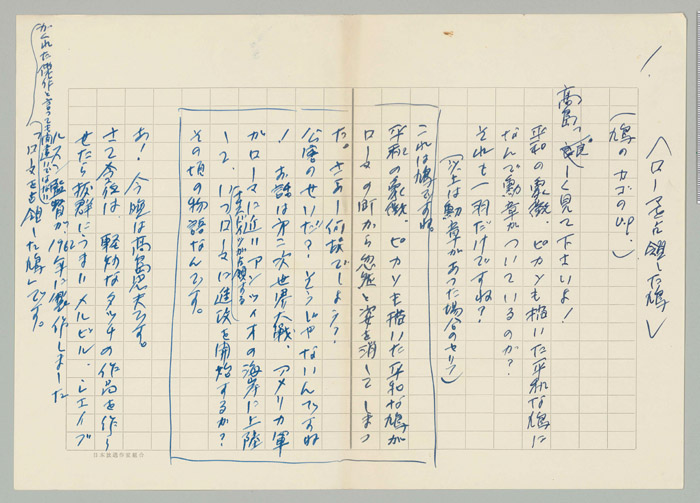 1.
＜ローマを占領した鳩＞
(鳩のカゴのup.)
高島っ 良ーく見て下さいよ!
平和の象徴、ピカソも描いた平和な鳩に
なんで勲章がついているのか?
それも一羽だけですね?
(以上は勲章があった場合のセリフ)
これは鳩ですね。
平和の象徴、ピカソも描いた平和な鳩が
ローマの町から忽然と姿を消してしまっ
た。さあー何故でしょう?
公害のせいだ? そうじゃないんですね
! お話は第二次世界大戦、アメリカ軍
がローマに近いアンツィオの海岸に上陸
して、いつローマに進攻を開始するか?
その頃の物語なんです。
あ! 今晩は高島忠夫です。
さて今夜は、軽妙なタッチの作品を作ら
せたら抜群にうまいメルビル・シェイブ
ルスン監督が1962年に製作しました
「ローマを占領した鳩」です。
かくれた傑作と言っても間違いではない